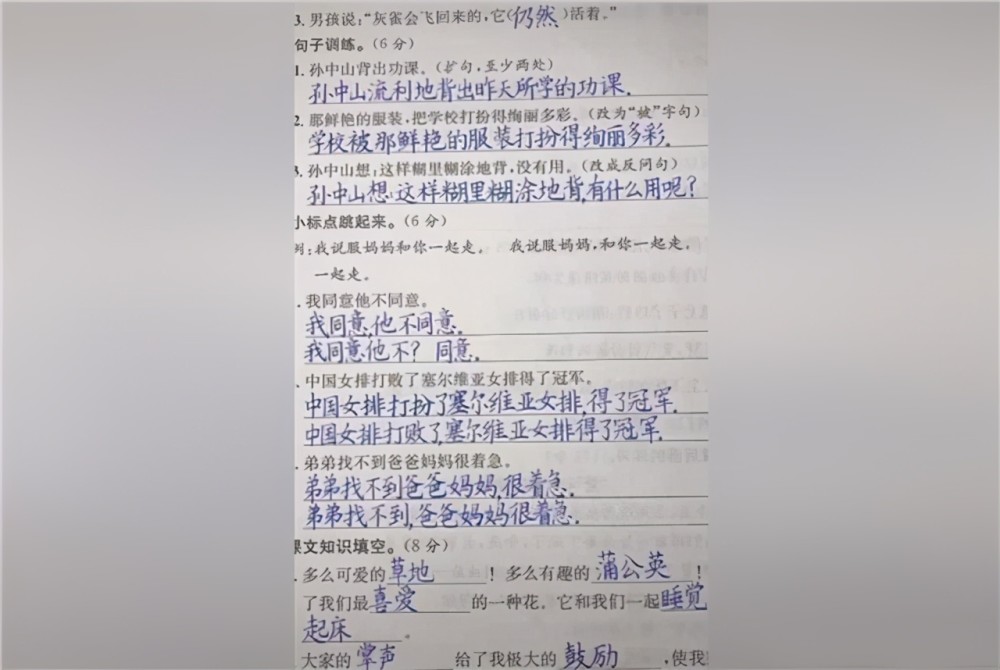 3. 男孩说：“灰雀会飞回来的，它(仍然)活着。”
句子训练。(6分)
1. 孙中山背出功课。(扩句，至少两处)
孙中山流利地背出昨天所学的功课.
2. 那鲜艳的服装，把学校打扮得绚丽多彩。(改为“被”字句)
学校被那鲜艳的服装打扮得绚丽多彩.
3. 孙中山想：这样糊里糊涂地背，没有用。(改成反问句)
孙中山想:这样糊里糊涂地背,有什么用呢?
小标点跳起来。(6分)
例：我说服妈妈和你一起走。 我说服妈妈，和你一起走。
一起走。
.我同意他不同意。
我同意,他不同意.
我同意他不? 同意.
.中国女排打败了塞尔维亚女排得了冠军。
中国女排打扮了塞尔维亚女排,得了冠军.
中国女排打败了,塞尔维亚女排得了冠军.
.弟弟找不到爸爸妈妈很着急。
弟弟找不到爸爸妈妈,很着急.
弟弟找不到,爸爸妈妈很着急.
课文知识填空。(8分)
.多么可爱的草地！多么有趣的蒲公英！
了我们最喜爱的一种花。它和我们一起睡觉
起床。
大家的掌声给了我极大的鼓励，使我